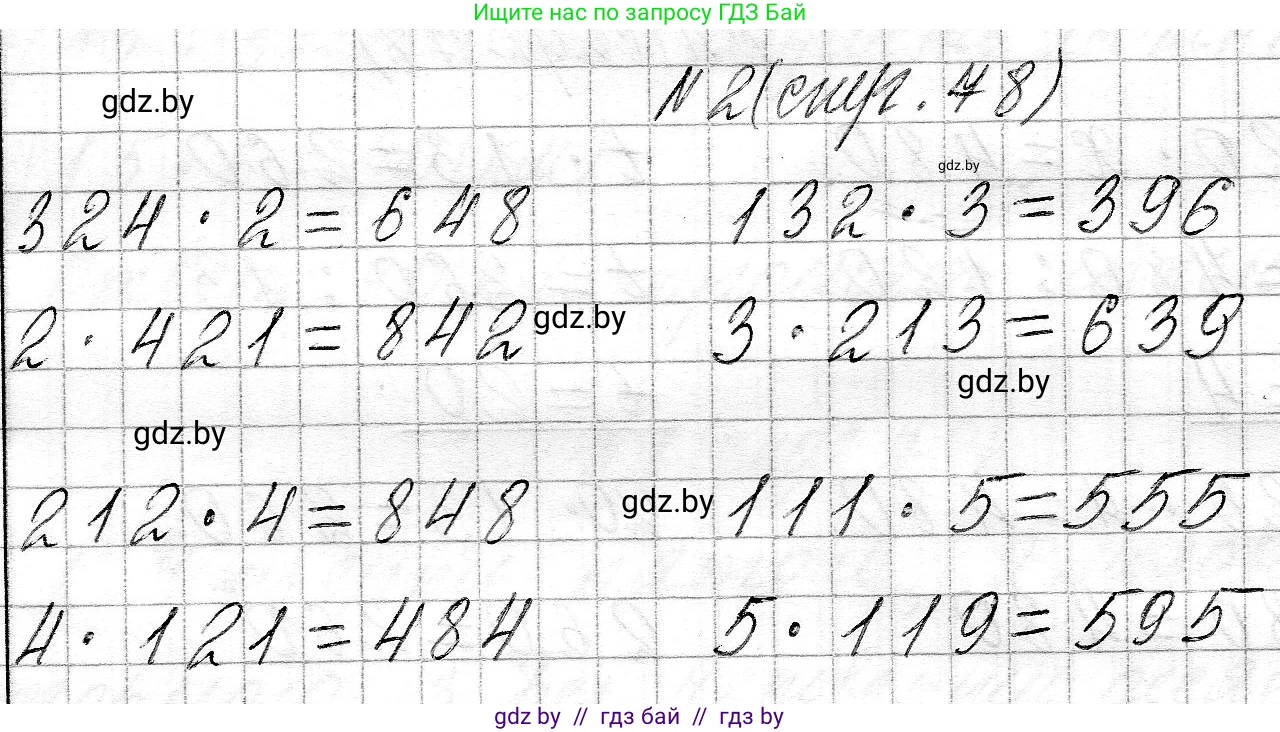 Ищите нас по запросу ГДЗ Бай
gdz.by
№ 2 (стр. 78)
gdz.by
324 · 2 = 648
132 · 3 = 396
2 · 421 = 842
gdz.by
3 · 213 = 639
gdz.by
gdz.by
212 · 4 = 848
gdz.by
111 · 5 = 555
4 · 121 = 484
5 · 119 = 595
gdz by // гдз бай // гдз by